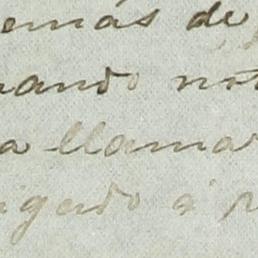 emás de
ando not
a llamar
igido á p